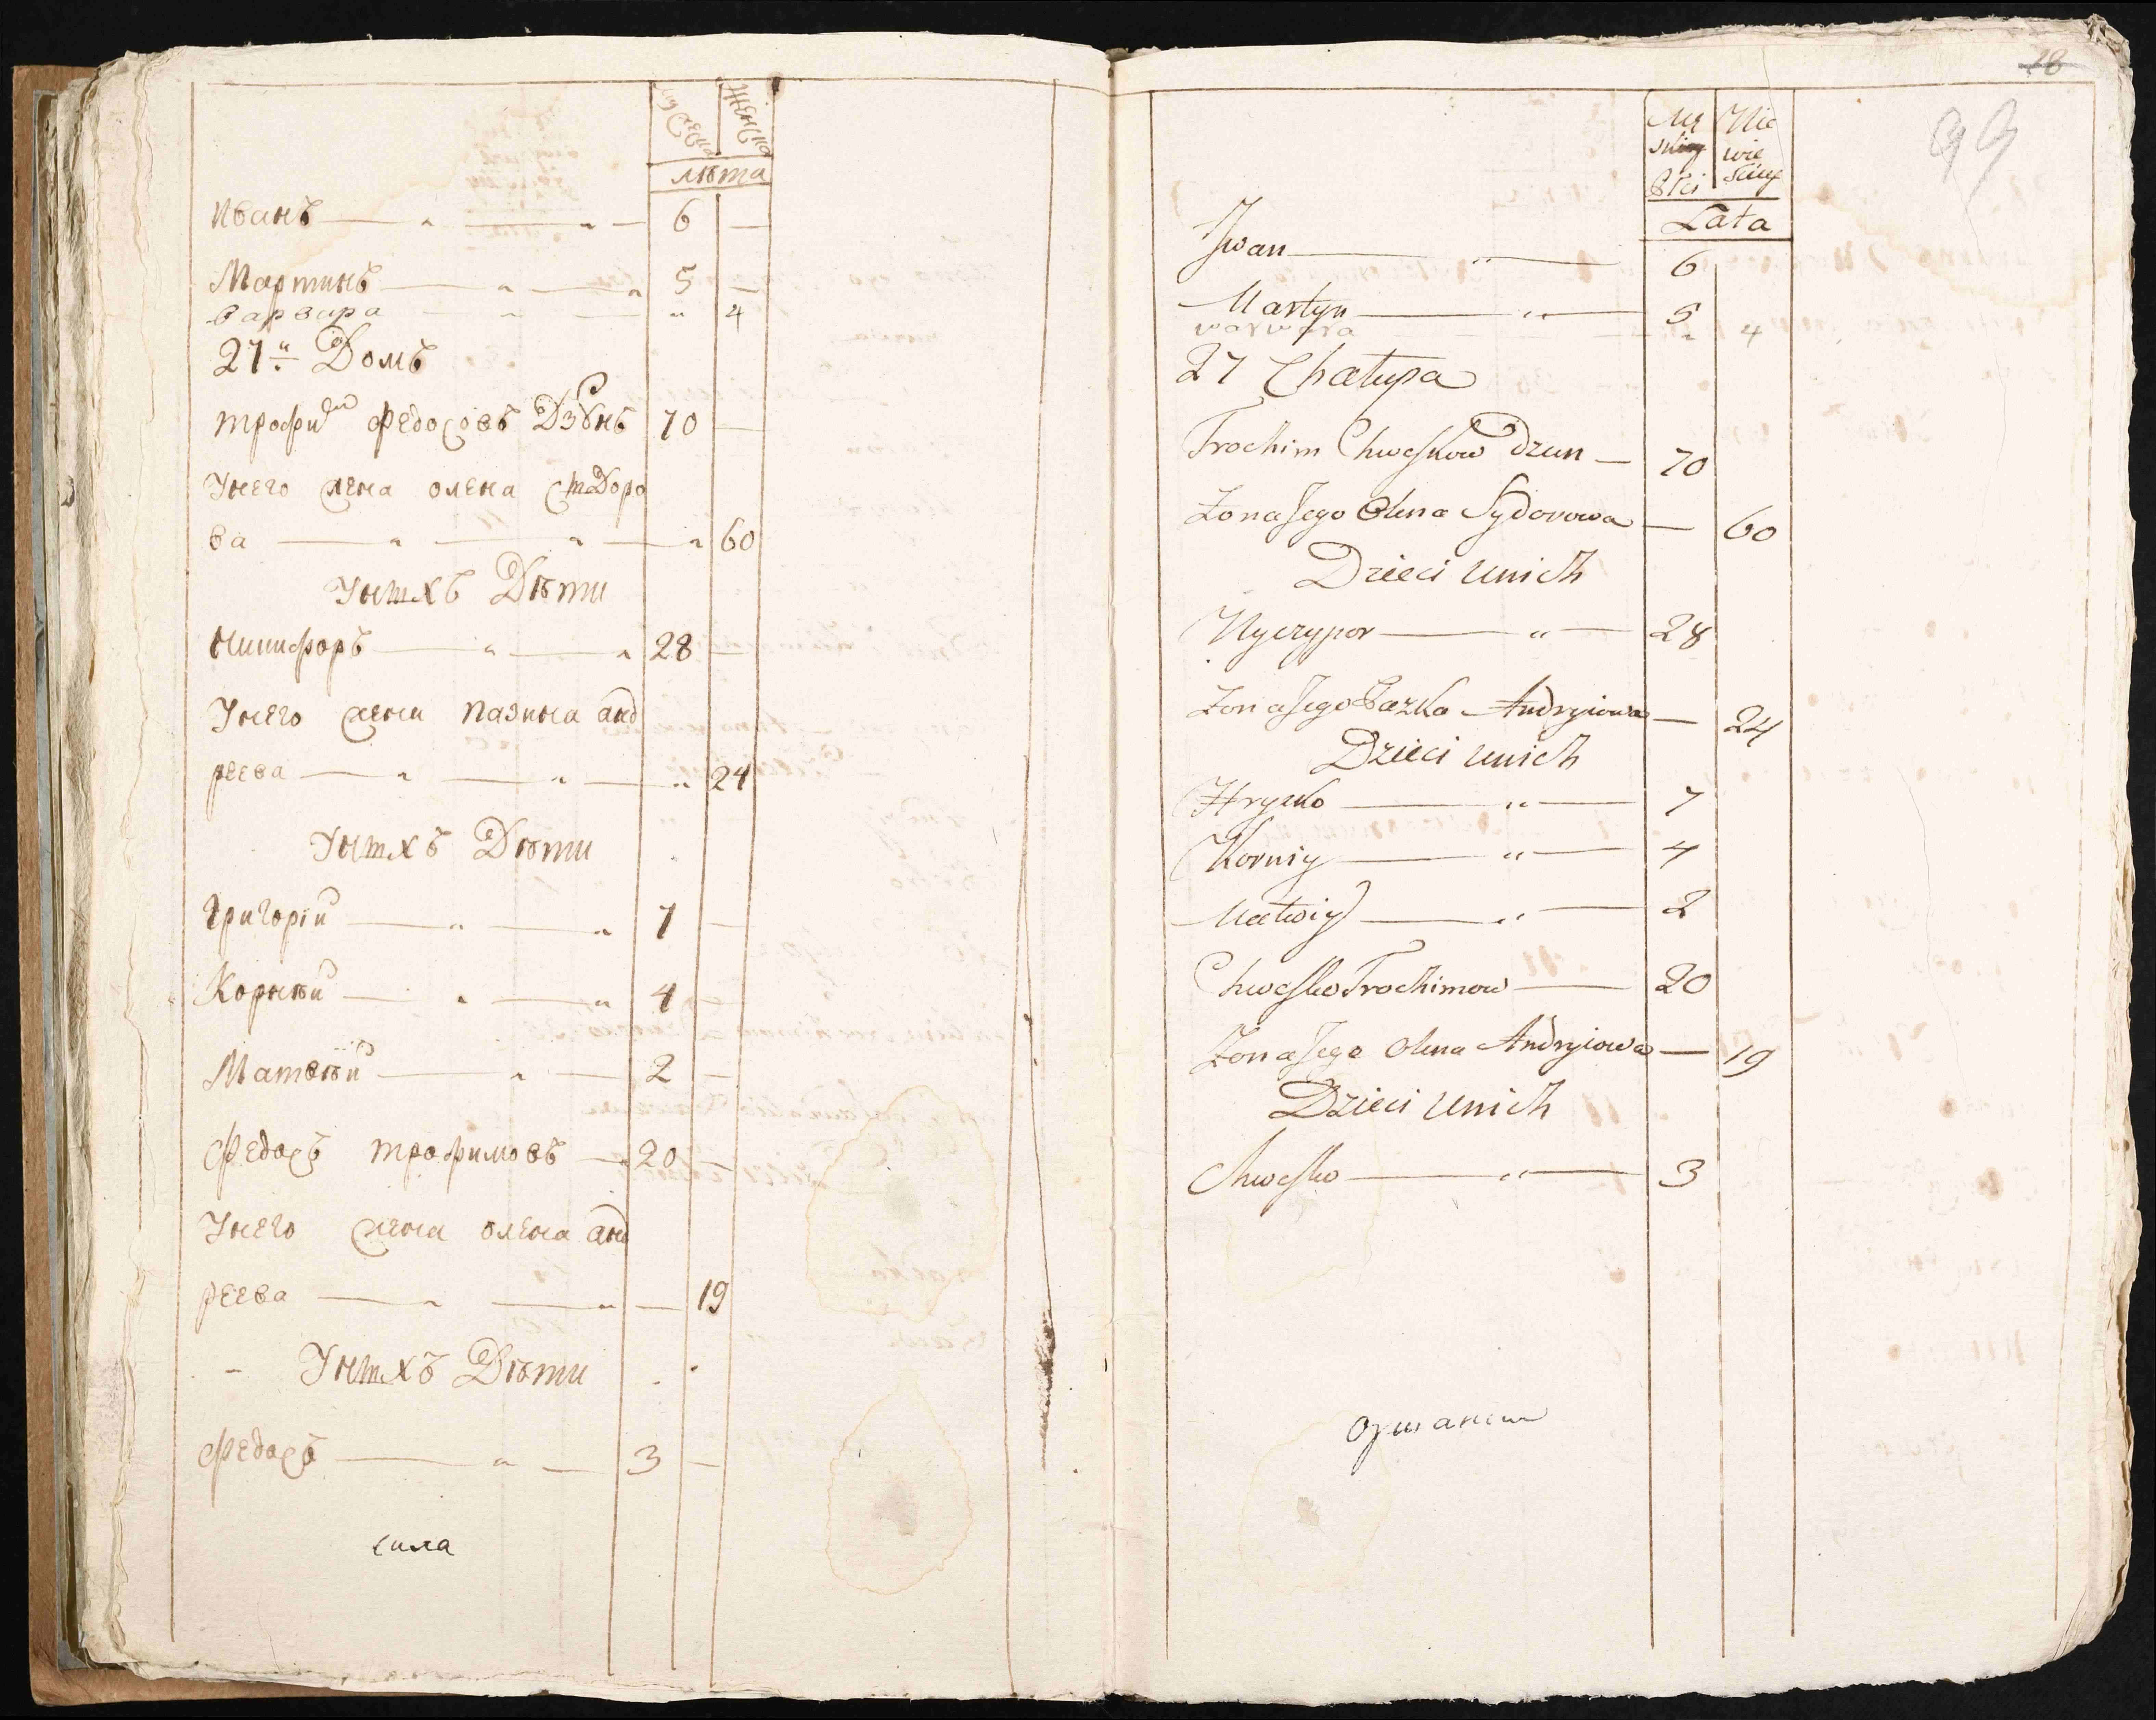 мужеска женска
лѣта
Иванъ 6 —
Мартинъ 5 —
варвара 4
27й Домъ
трофим Федосовъ Дзюнъ 70 —
Унего жена олена Сидоро
ва 60
Унихъ Дѣти
Никифоръ 28 —
Унего жена пазина анд
реева 24
Унихъ Дѣти
Григорій 7 —
Корнѣй 4 —
Матвѣй 2 —
Федосъ трофимовъ 20 —
Унего жена олена анд
реева — 19
Унихъ Дѣти
Федосъ 3 —
сила
18
99
Mę Nie
skiey wie
Płci sciey
Lata
Jwan 6
Martyn 5
warwara 4
27 Chałupa
Trochim Chweskow Dzun — 70
Zona Jego Olena Sydorowa — 60
Dzieci unich
Nyczypor 28
Zona Jego Pazka Andryiowa — 24
Dzieci unich
Hryczko 7
Korniy 4
Matwiy 2
Chwesko Trochimow 20
Zona Jego Olena Andryiowa — 19
Dzieci unich
Chwesko 3